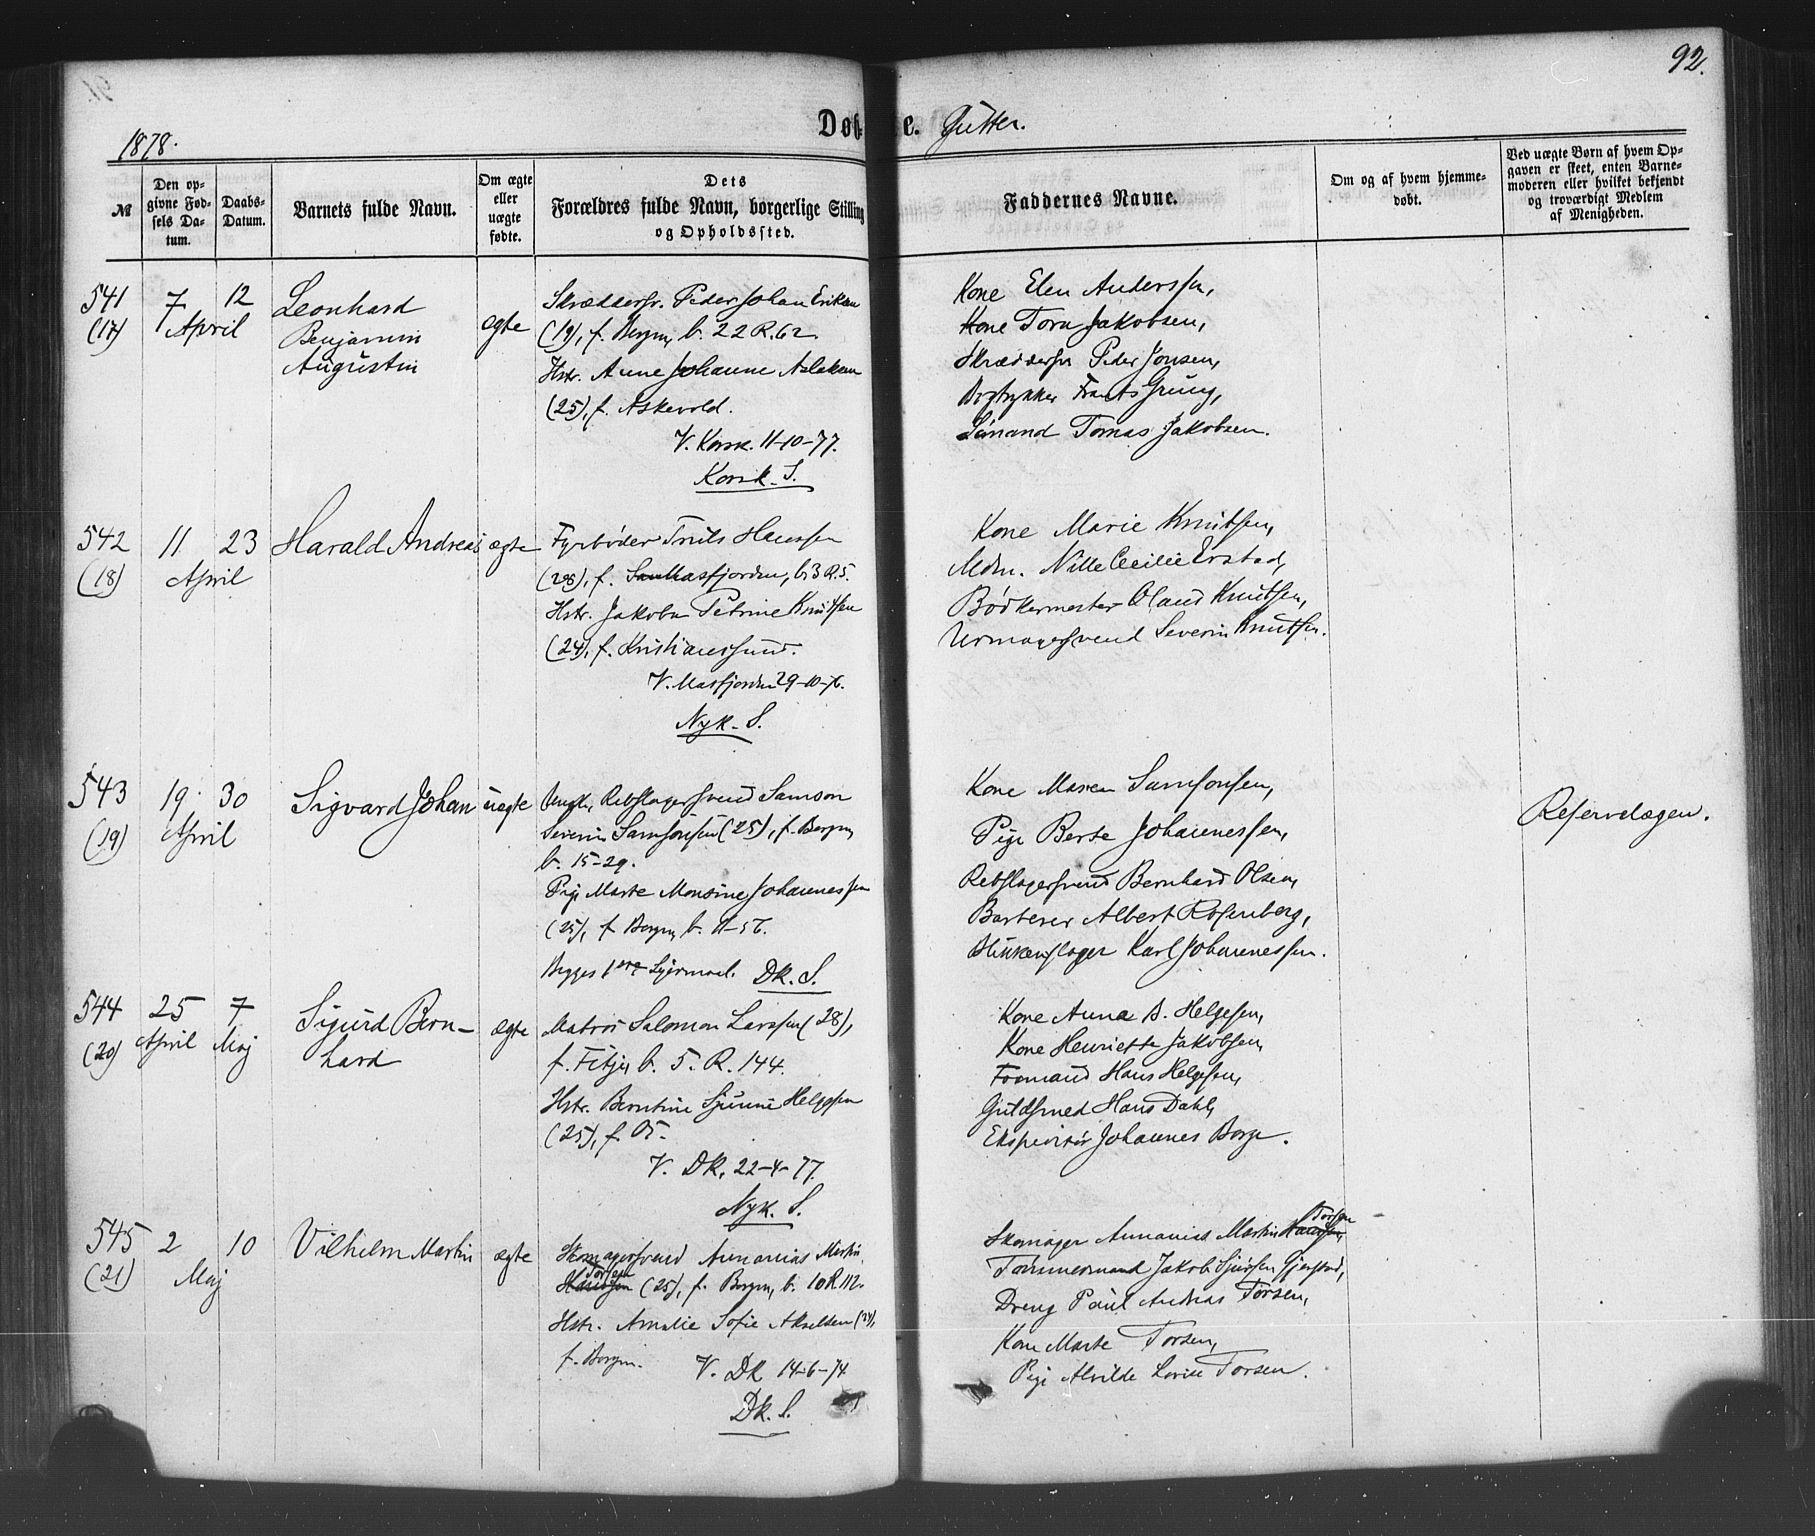 92.
1878.
Døbte. Gutter.
№
Den opgivne Fødsels Datum.
Daabs-Datum.
Barnets fulde Navn.
Om ægte eller uægte fødte.
Dets Forældres fulde Navn, borgerlige Stilling og Opholdssted.
Faddernes Navne.
Om og af hvem hjemmedøbt.
Ved uægte Børn af hvem Opgaven er skeet, enten Barnemoderen eller hvilket bekjendt og troværdigt Medlem af Menigheden.
541
(17)
7 12
April
Leonhard
Benjamin
Augustin
ægte
Skræddersv. Peder Johan Eriksen
(19), f. Bergen, b. 22 R. 62.
Hstr. Anne Johanne Aslaksen
(25), f. Askevold.
V. Korsk. 11-10-77.
Korsk. S.
Kone Elen Anderssen,
Kone Tora Jakobsen,
Skræddersv. Peder Jonsen,
Bogtrykker Frants Grung,
Sømand Tomas Jakobsen.
542
(18)
11 23
April
Harald Andreas
ægte
Fyrbøder Truls Hanssen
f. Masfjorden, b. 3 R. 5.
Hstr. Jakoba Petrine Knutsen
(24), f. Kristianssund.
V. Masfjorden 29-10-76.
Nyk. S.
Kone Marie Knutsen,
Mdm. Nille Cecilie Erstad,
Bødkermester Olaus Knutsen,
Urmagersvend Severin Knutsen.
543
(19)
19 30
April
Sigvard Johan
uægte
Ungk. Rebslagersvend Samson
Severin Samsonsen (25), f. Bergen,
b. 15-29.
Pige Marte Monsine Johannessen
(25), f. Bergen, b. 11-56.
Begges 1ste Lejermaal. Dk. S.
Kone Maren Samsonsen,
Pige Berte Johannessen,
Rebslagersvend Bernhard Olsen,
Barberer Albert Rosenberg,
Blikkenslager Karl Johannessen.
Reservelægen.
544
(20)
25 7
April Maj
Sigurd Bern-
hard
ægte
Matros Salomon Larssen (28),
f. Fitje, b. 5. R. 144.
Hstr. Berntine Helgesen
(25), f. Os.
V. DK. 22-4-77.
Nyk. S.
Kone Anna B. Helgesen,
Kone Henriette Jakobsen,
Formand Hans Helgesen,
Guldsmed Hans Dahl,
Ekspeditør Johannes Borge.
545
(21)
2 10
Maj
Vilhelm Martin
ægte
Skomagersvend Annanias Martin
Torsen
Hansen (25), f. Bergen, b. 10 R 112.
Hstr. Amalie Sofie Akselsen (24),
f. Bergen.
V. DK 14-6-74
Dk. S.
Torsen
Skomager Annanias Martin Hansen,
Tømmermand Jakob Sjursen Gjerstad,
Dreng Paul Andreas Torsen,
Kone Marte Torsen,
Pige Alvilde Lovise Torsen.